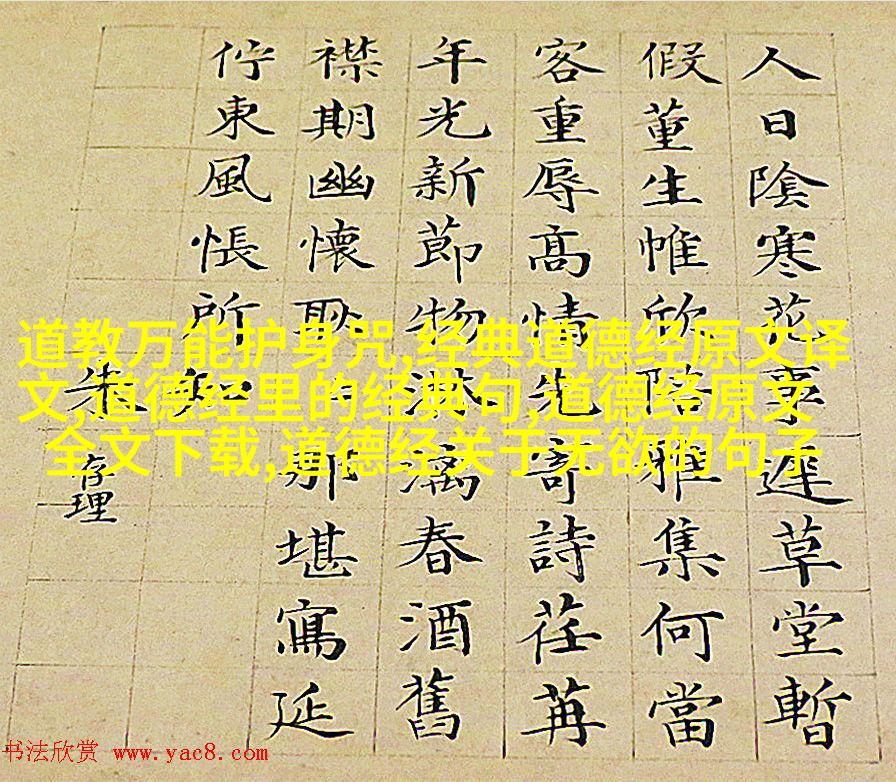 人日陰寒花事遲草堂暫
假董生帷欣陪雅集何當
客重辱高情先寄詩荏苒
年光新節物淋漓春酒舊
襟期幽懷耿那堪寫延
佇東風悵所知
朱存理
道教万能护身咒,经典道德经原文译
文,道德经里的经典句,道德经原文
全文下载,道德经关于无欲的句子
书法欣赏 www.yac8.com